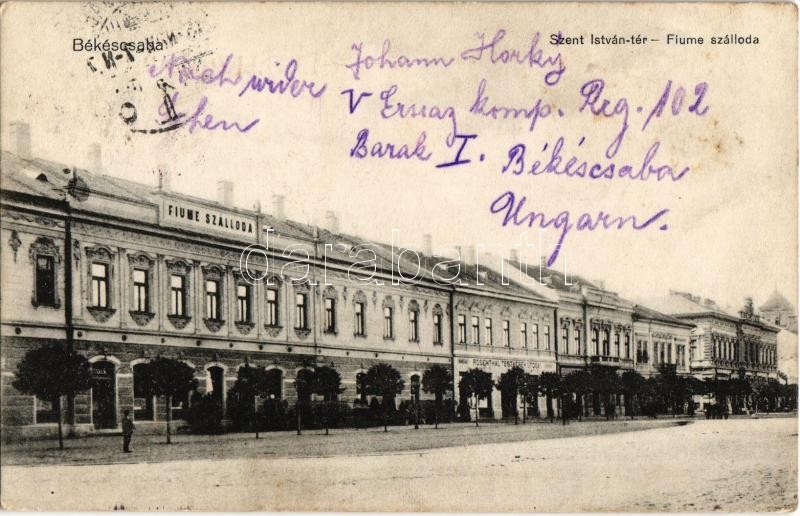 Békéscsaba
Szent István-tér — Fiume szálloda
Noch wider
Sehen
Johann Horky
V Ersaz komp. Reg. 102
Barak I. Békéscsaba
Ungarn.
FIUME SZÁLLODA
darabanth
ROSENTHAL TESTVÉREK